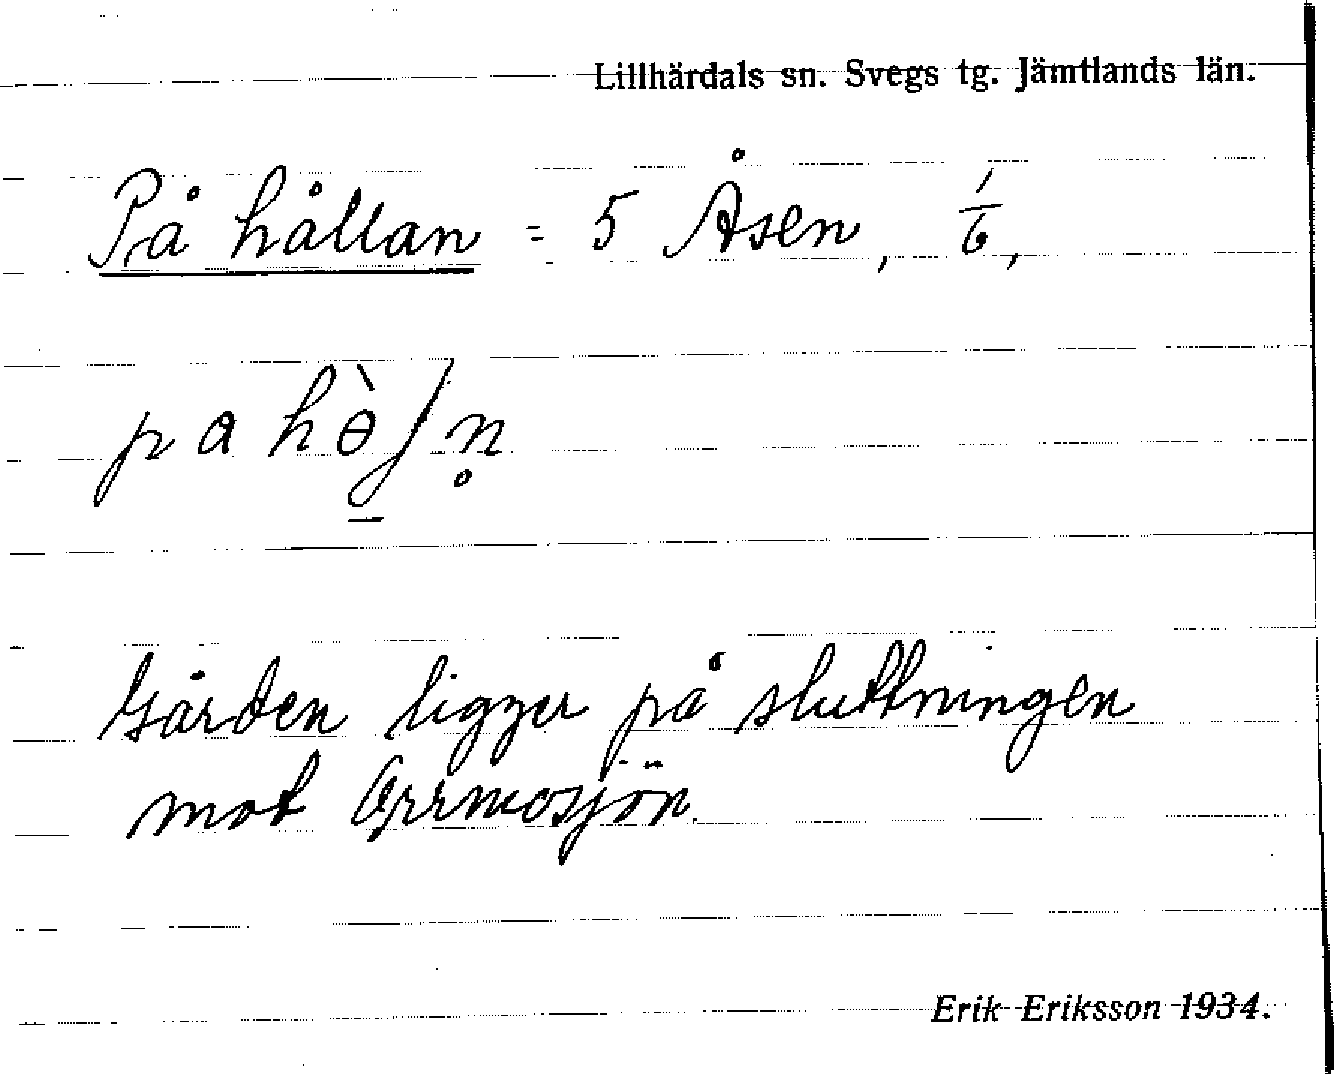 Lillhärdals sn. Svegs tg. Jämtlands län.
På hållan = 5 Åsen, 1/6,
pa hɵ̀ʃn̥
Gården ligger på sluttningen
mot Orrmosjön.
Erik Eriksson 1934.